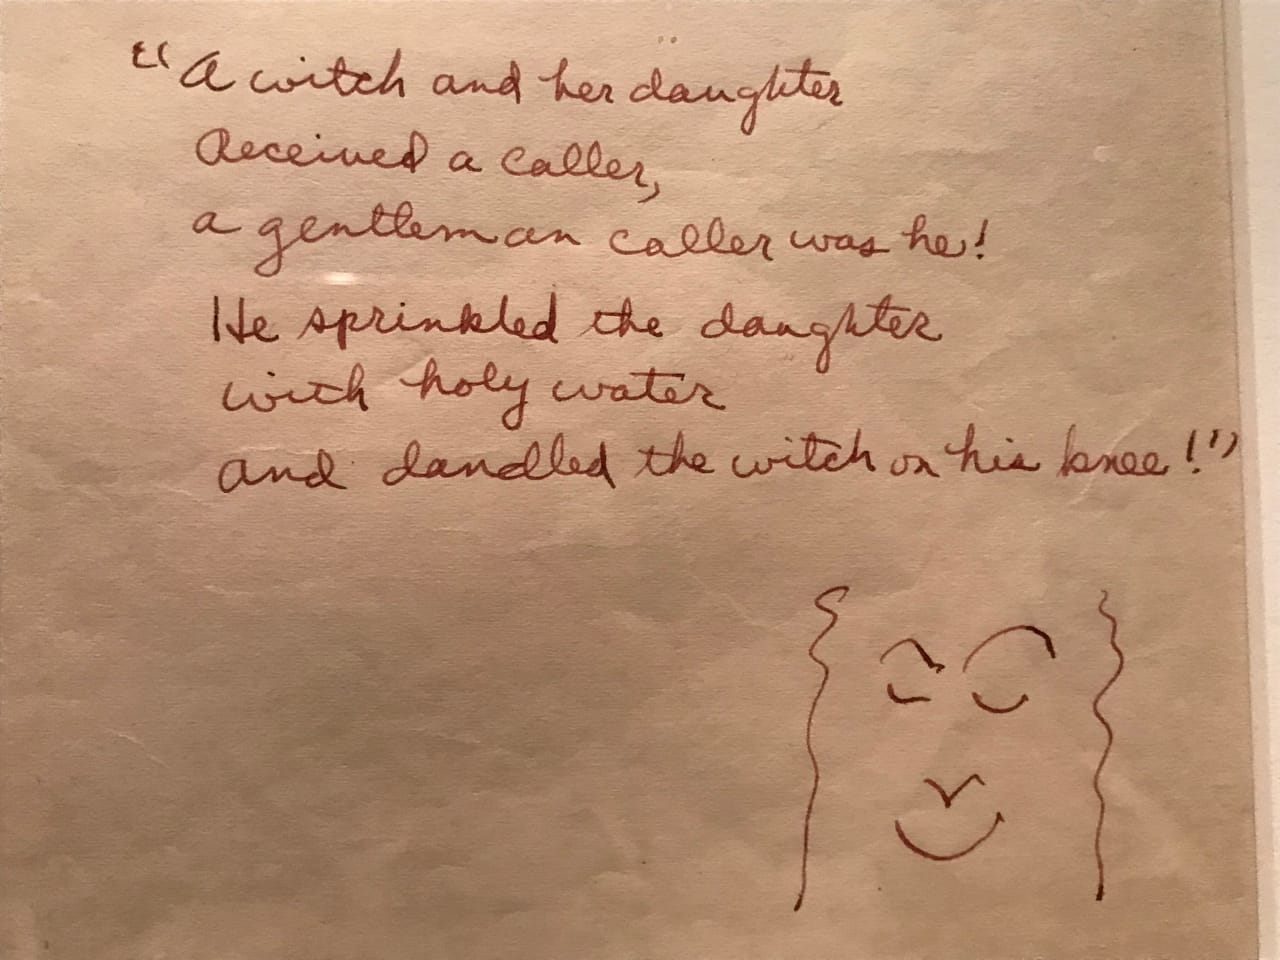 "A witch and her daughter
Received a caller,
a gentleman caller was he!
He sprinkled the daughter
with holy water
and dandled the witch on his knee!"